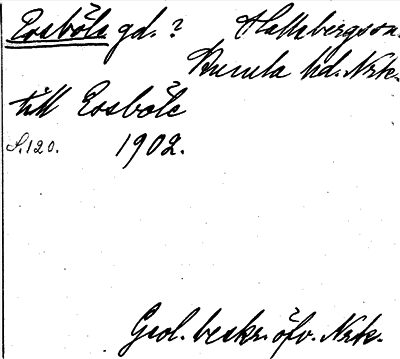 Eosböle gd. ? Hallsbergs sn.
Kumla hd. Nrk.
till Eosböle
S. 120. 1902.
Geol. beskr. öfv. Nrk.